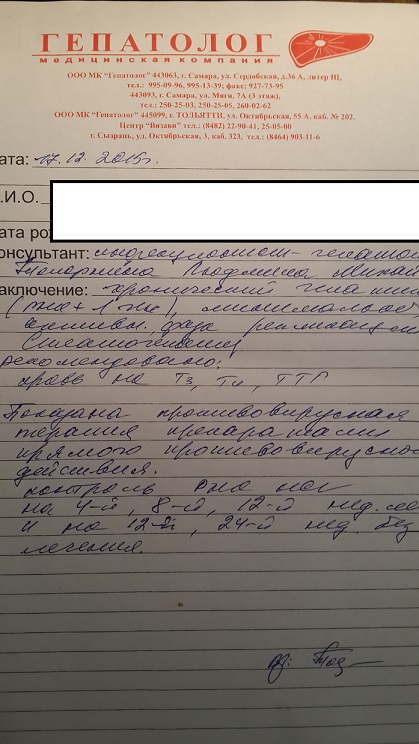 ГЕПАТОЛОГ
медицинская компания
ООО МК "Гепатолог" 443063, г. Самара, ул. Сердобская, д.36 А, литер Щ,
тел.: 995-09-96, 995-13-39; факс: 927-73-95
443093, г. Самара, ул. Мяги, 7А (3 этаж),
тел.: 250-25-03, 250-25-05, 260-02-62
ООО МК "Гепатолог" 445099, г. ТОЛЬЯТТИ, ул. Октябрьская, 55 А, каб. № 202,
Центр "Визави" тел.: (8482) 22-90-41, 25-05-00
г. Сызрань, ул. Октябрьская, 3, каб. 323, тел.: (8464) 903-11-6
ата: 17.12.2015г.
.И.О.
ата рож
онсультант: инфекционист-гепатол
Людмила Михай
аключение: хронический гепатит
(рнк+ 1 ), минимальной
активн. фаза репликации
рекомендовано:
кровь на Т3, Т4, ТТГ
Показана противовирусная
терапия препаратами
прямого противовирусно
действия.
контроль РНК
на 4-й, 8-й, 12-й нед. ле
и на 12-й, 24-й нед. без
лечения.